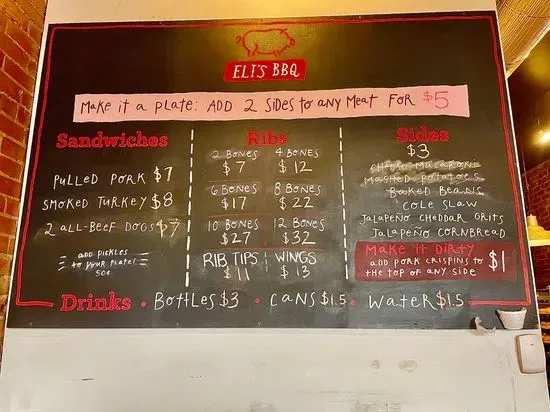 ELI'S BBQ
MAKE IT A PLATE: ADD 2 SIDES TO ANY MEAT FOR $5
Sandwiches
PULLED PORK $7
SMOKED TURKEY $8
2 ALL-BEEF DOGS $7
ADD PICKLES
TO YOUR PLATE!
50¢
Ribs
2 BONES 4 BONES
$7 $12
6 BONES 8 BONES
$17 $22
10 BONES 12 BONES
$27 $32
RIB TIPS WINGS
$11 $13
Sides
$3
MASHED POTATOES
BAKED BEANS
COLE SLAW
JALAPEÑO CHEDDAR GRITS
JALAPEÑO CORNBREAD
MAKE IT DIRTY
ADD PORK CRISPINS TO
THE TOP OF ANY SIDE $1
Drinks • BOTTLES $3 • CANS $1.5 • WATER $1.5